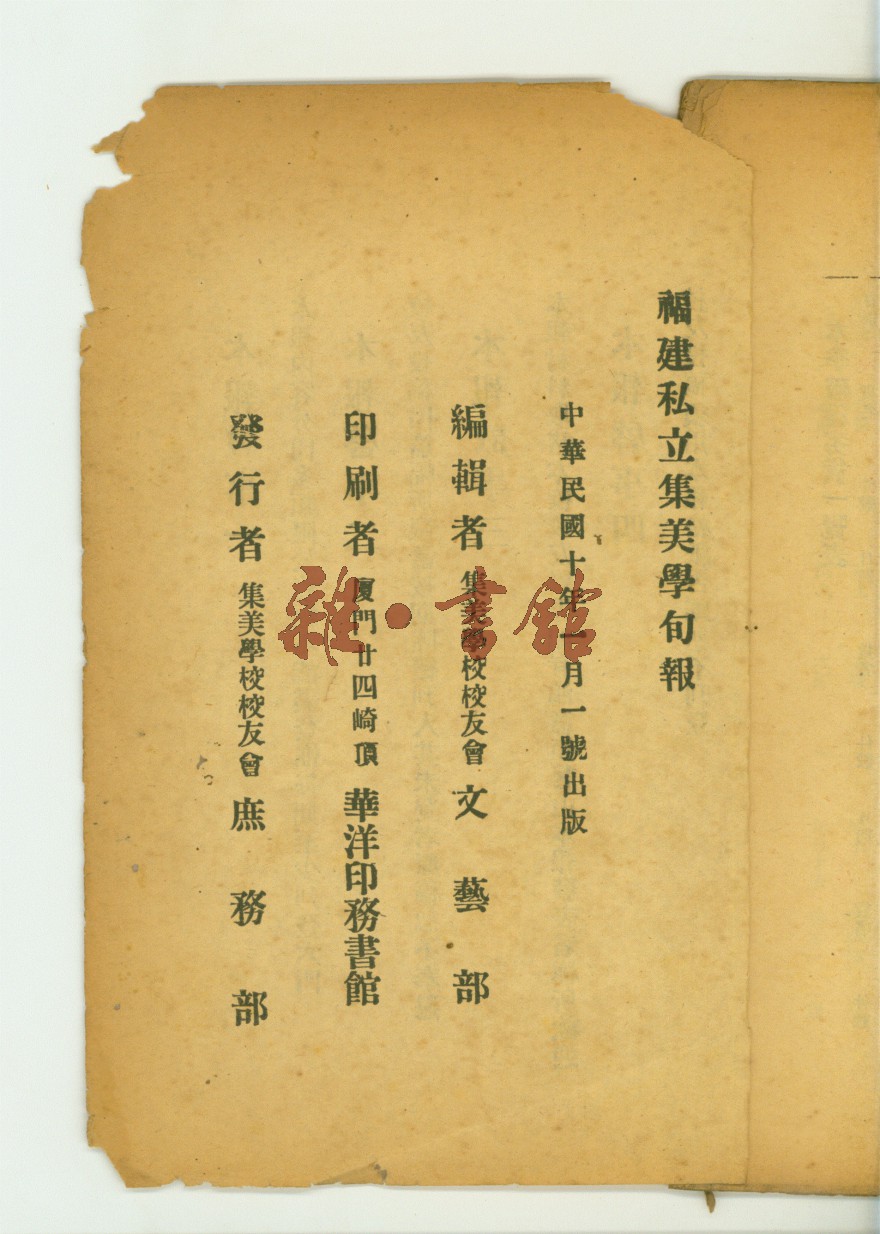 福建私立集美學旬報
中華民國十年一月一號出版
編輯者 集美學校校友會 文藝部
印刷者 廈門廿四崎頂 華洋印務書館
發行者 集美學校校友會 庶務部
雜·書館